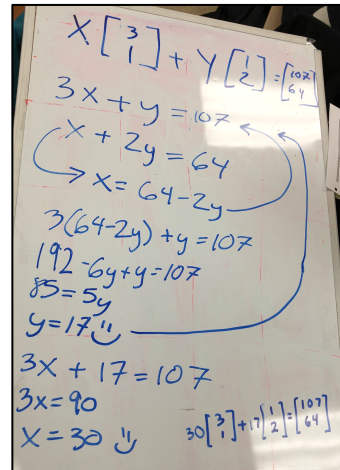 X[3 1] + Y[1 2] = [107 64]
3x + y = 107
x + 2y = 64
x = 64 - 2y
3(64-2y) + y = 107
192 - 6y + y = 107
85 = 5y
y = 17
3x + 17 = 107
3x = 90
x = 30
30[3 1] + 17[1 2] = [107 64]